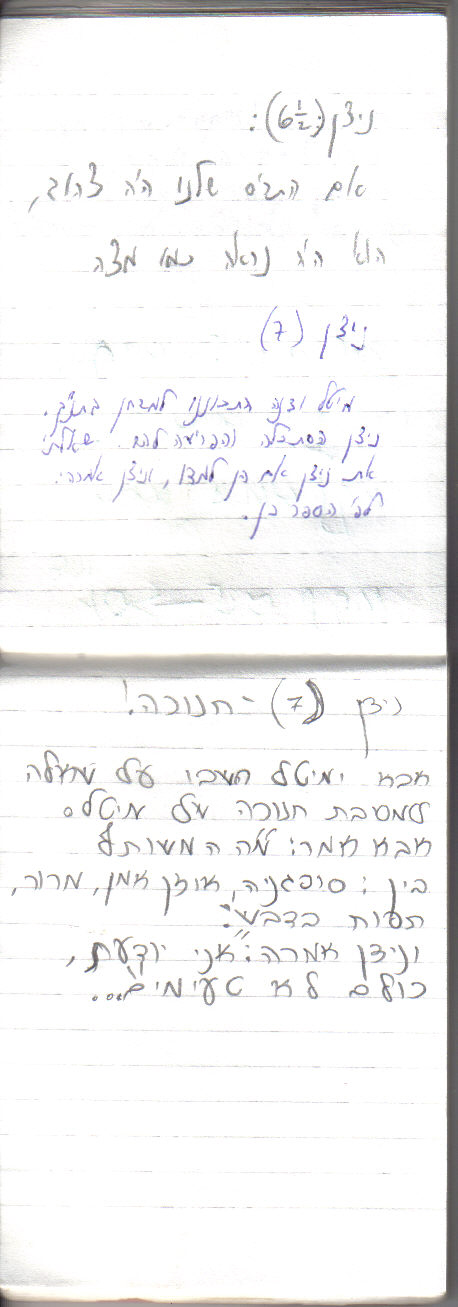 ניצן (6½):
אם התיס שלנו היה צהוב,
הוא היה נראה כמו מצה
ניצן (7)
מיטל ודנה התכוננו למבחן בתנ"ך.
ניצן הסתכלה והפריעה להם. שאלתי
את ניצן אם הן למדו, וניצן אמרה:
לפי הספר כן.
ניצן (7) - חנוכה!
אבא ומיטל חשבו על שאלה
למסיבת חנוכה של מיטל.
אבא אמר: מה המשותף
בין: סופגניה, אוזן המן, מרור,
תפוח בדבש?
וניצן אמרה: "אני יודעת,
כולם לא טעימים...